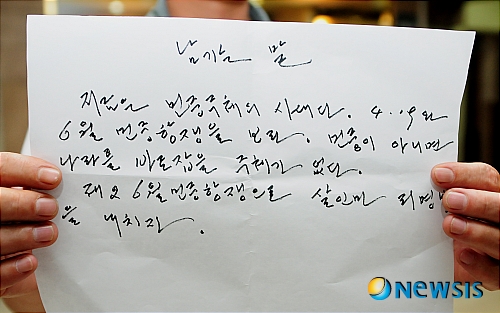 남기는 말
지금은 민중주체의 시대다. 4.19와
6월 민중항쟁을 보라. 민중이 아니면
나라를 바로잡을 주체가 없다.
제2 6월 민중항쟁으로 살인마 리명박
을 내치자.
NEWSIS